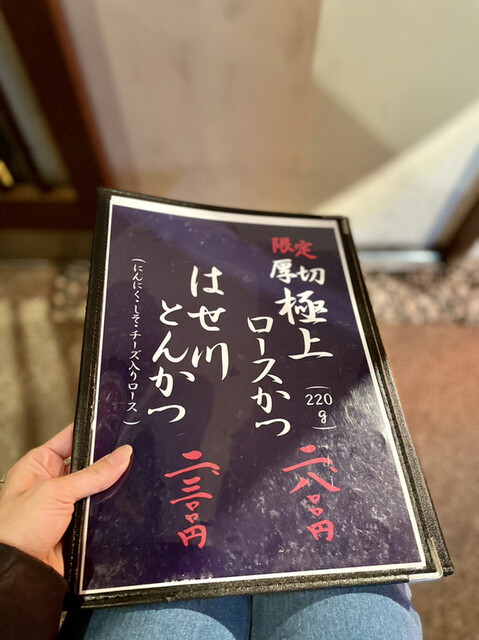 限定
厚切極上
ロースかつ
(220g)
二、八〇〇円
はせ川
とんかつ
(にんにく・しそ・チーズ入りロース)
二、三〇〇円